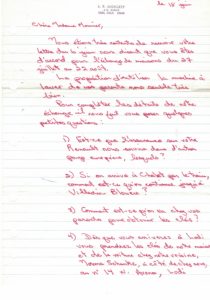 le 18 juin
Chère Madame Monnier,
Nous étions très contents de recevoir votre
lettre du 6 juin nous disant que vous êtes
d'accord pour l'échange de maisons du 27
juillet au 22 août.
La proposition d'utiliser la machine à
laver de vos parents nous semble très
bien.
Pour compléter les détails de notre
échange nous avons quelques
petites questions:
1) Est-ce que l'assurance sur votre
Renault nous couvre dans d'autres
pays européens,
2) Si on arrive à par le train,
comment est-ce qu'on continue jusqu'à
3) Comment est-ce qu'on va chez vos
parents pour obtenir les clés?
4) Dès que vous arriverez à Lodi
vous prendrez les clés de notre maison
et de la voiture chez notre voisine,
à côté de chez nous,
au nº 14 N. Lodi